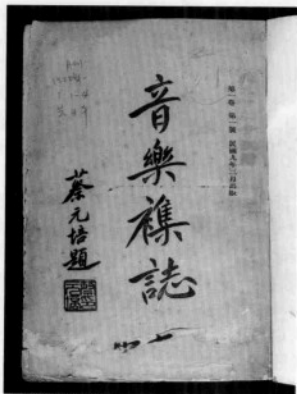 第一卷 第一號 民國九年三月出版
音樂襍誌
蔡元培題